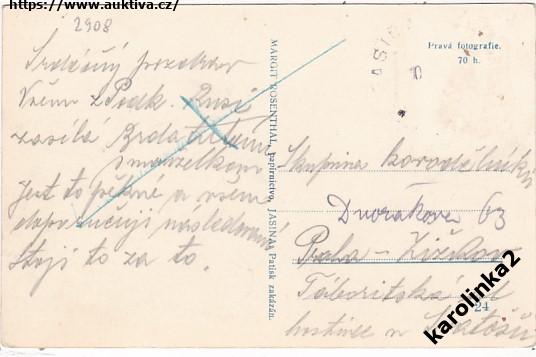 https://www.auktiva.cz/
2908
Srdečný pozdrav
Všem z Podk. Rusi
zasílá Brda
s manželkou
Jest to pěkné a všem
doporučuji následování
Stojí to za to.
MARGIT ROSENTHAL, papírnictvo, JASINA. Patisk zakázán.
Pravá fotografie.
70 h.
Skupina kovodělníků
Dvořákova 63
Praha - Žižkov
Táboritská ul
24
hostinec u
karolinka2